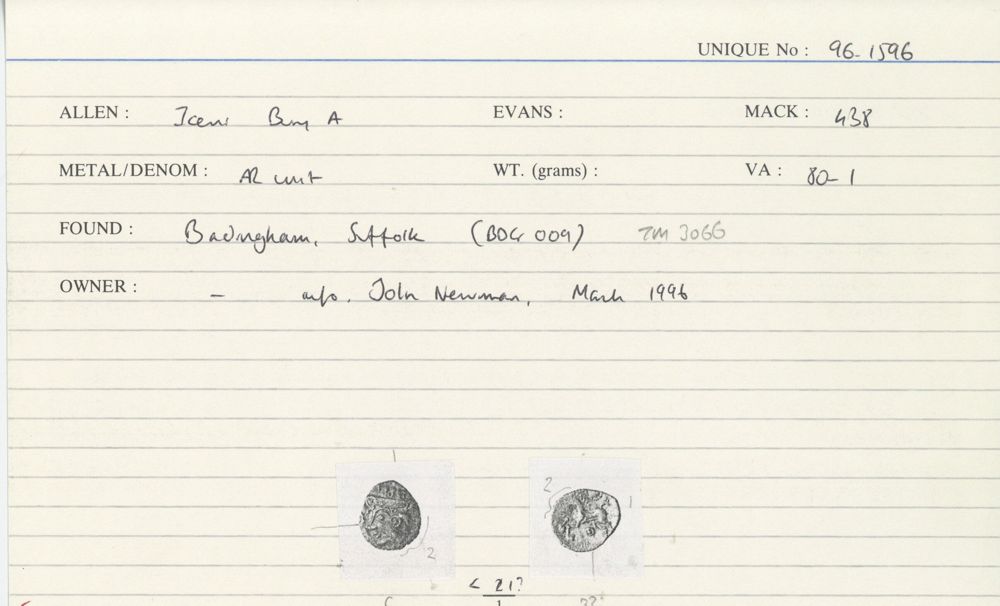 UNIQUE No : 96-1596
ALLEN : Iceni Bury A EVANS : MACK : 438
METAL/DENOM : AR unit WT. (grams) : VA : 80-1
FOUND : Badingham, Suffolk (BDG 009) TM 3066
OWNER : – info. John Newman, March 1996
1
2 1
2
< 21?
1